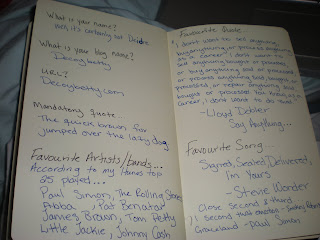 What is your name?
Well, it's certainly not Deidre
What is your blog name?
Decoybetty
URL?
Decoybetty.com
Mandatory quote...
The quick brown fox
jumped over the lazy dog
Favourite Artists/bands...
According to my itunes top
25 played...
Paul Simon, The Rolling Stones
Abba, Pat Benatar
James Brown, Tom Petty
Little Jackie, Johnny Cash
Favourite Quote
I don't want to sell anything,
buy anything, or process anything
as a career. I don't want to
sell anything bought or processed
or buy anything sold or processed
or process anything sold, bought or
processed, or repair anything sold,
bought or processed
career, I don't want to do that.
-Lloyd Dobler
Say Anything...
Favourite Song...
Signed, Sealed Delivered,
I'm Yours
- Stevie Wonder
Close Second & third
Graceland - Paul Simon